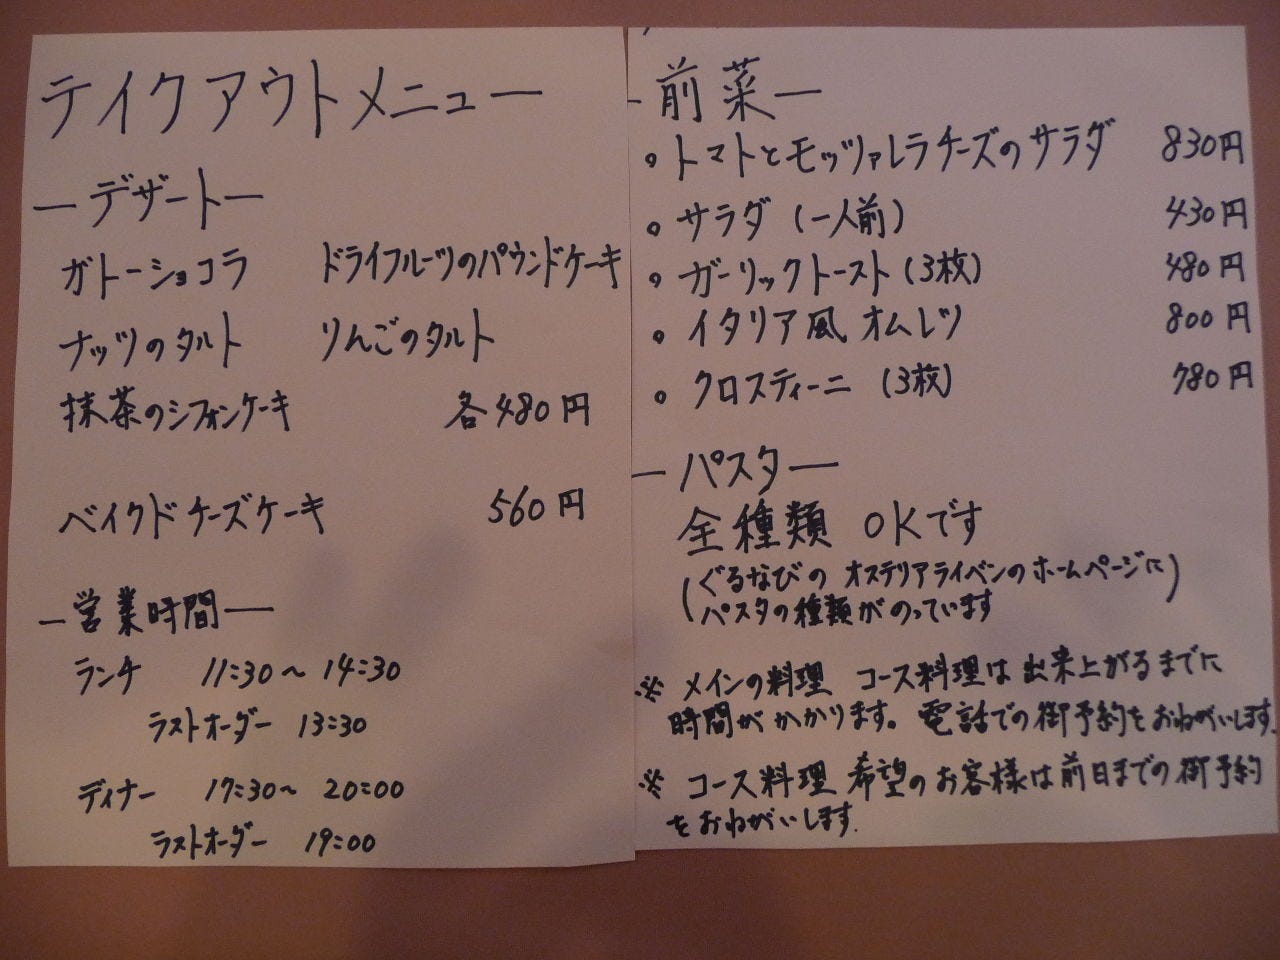 テイクアウトメニュー
ーデザートー
ガトーショコラ ドライフルーツのパウンドケーキ
ナッツのタルト りんごのタルト
抹茶のシフォンケーキ 各480円
ベイクドチーズケーキ 560円
ー営業時間ー
ランチ 11:30～14:30
ラストオーダー 13:30
ディナー 17:30～20:00
ラストオーダー 19:00
ー前菜ー
。トマトとモッツァレラチーズのサラダ 830円
。サラダ(一人前) 430円
。ガーリックトースト(3枚) 480円
。イタリア風オムレツ 800円
。クロスティーニ (3枚) 780円
ーパスター
全種類 OKです
(ぐるなびの オステリアライベンのホームページに
パスタの種類がのっています)
※ メインの料理 コース料理は出来上がるまでに
時間がかかります。電話での御予約をおねがいします。
※ コース料理 希望のお客様は前日までの御予約
をおねがいします.